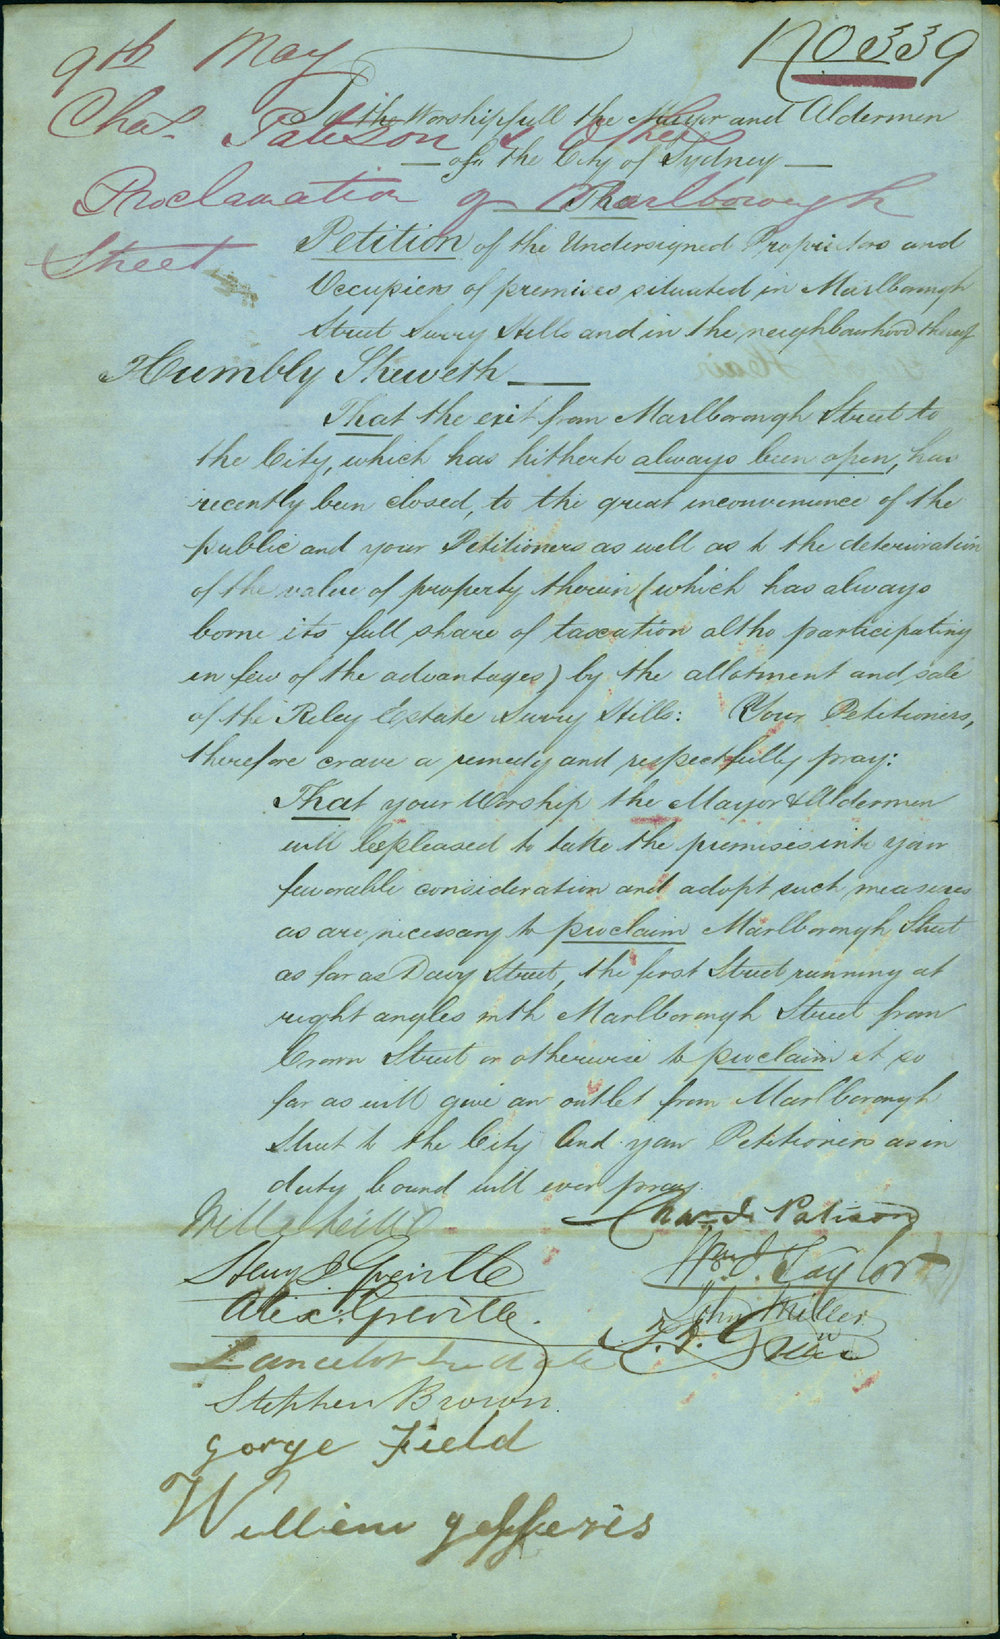 No 339
9th May
Chas. Patison & Others
Proclamation of Marlborough
Street
To the Worshipfull the Mayor and Aldermen
— of the City of Sydney —
The
Petition of the Undersigned Proprietors and
Occupiers of premises situated in Marlborough
Street Surry Hills and in the neighbourhood thereof
Humbly Sheweth —
That the exit from Marlborough Street to
the City, which has hitherto always been open, has
recently been closed, to the great inconvenience of the
public and your Petitioners as well as to the deterioration
of the value of property therein (which has always
borne its full share of taxation altho participating
in few of the advantages) by the allotment and sale
of the Riley Estate Surry Hills: Your Petitioners,
therefore crave a remedy and respectfully pray:
That your Worship the Mayor & Aldermen
will be pleased to take the premises into your
favorable consideration and adopt such measures
as are necessary to proclaim Marlborough Street
as far as Davy Street, the first Street running at
right angles with Marlborough Street from
Crown Street or otherwise to proclaim it so
far as will give an outlet from Marlborough
Street to the City And your Petitioners as in
duty bound will ever pray.
Chas. J. Patison
Wm. J. Taylor
Henry Greville
John Miller
Alex. Greville.
Lancelot
Stephen Brown.
gorge Field
William gefferis